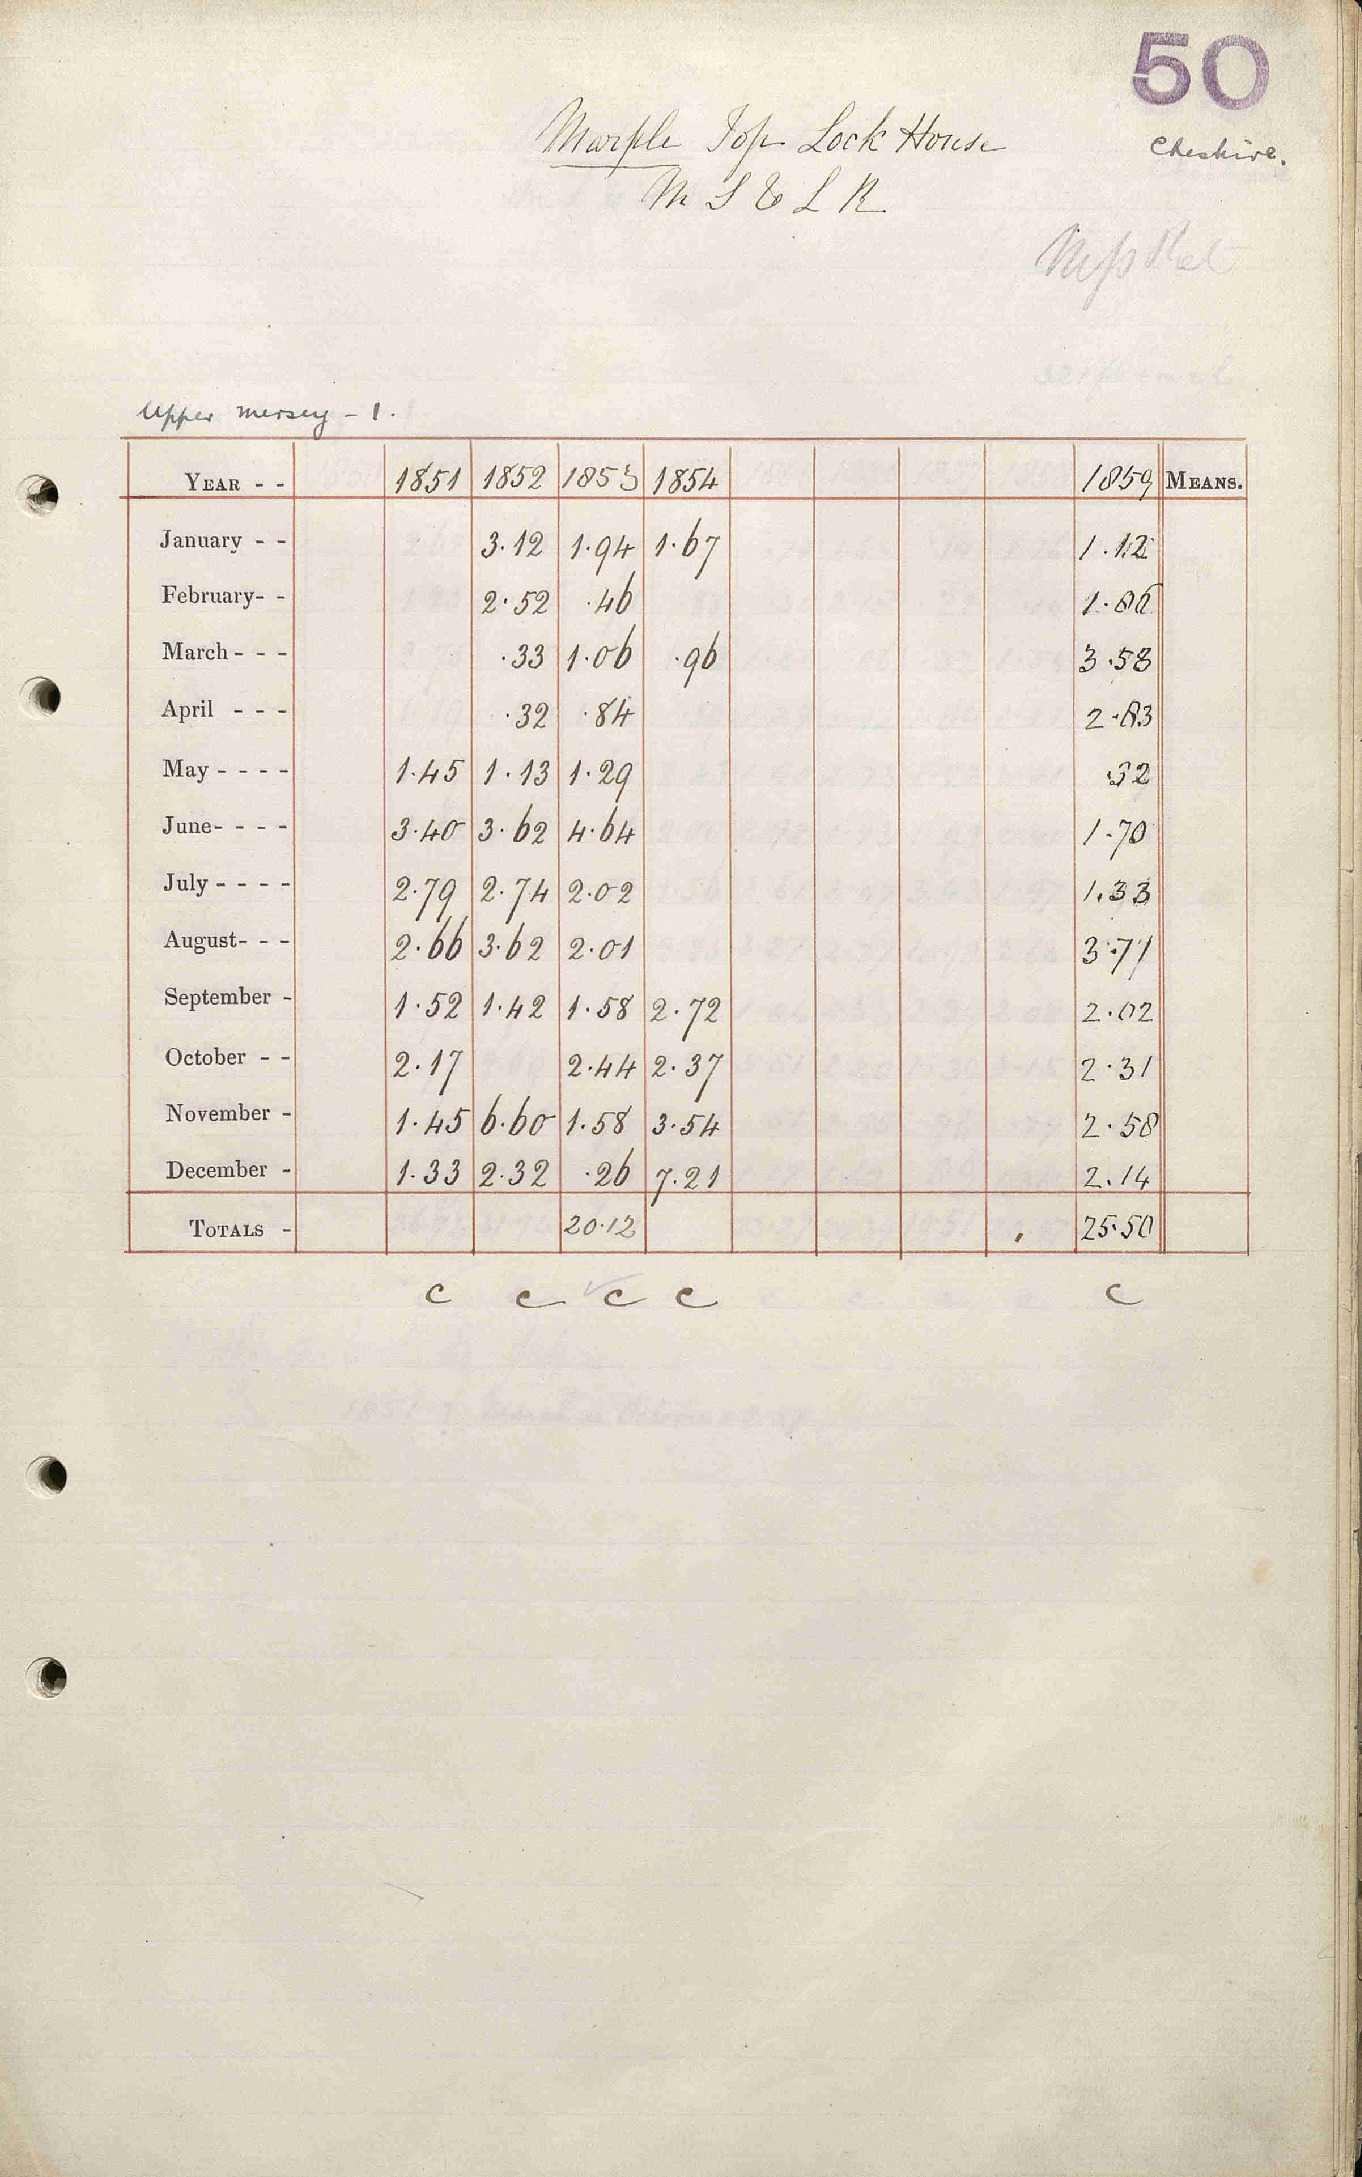 50
Marple Top Lock House
Cheshire.
M S & L R
Upper Mersey - 1.
YEAR - - 1851 1852 1853 1854 1859 MEANS.
January - - 3.12 1.94 1.67 1.12
February - - 2.52 .46 1.86
March - - - .33 1.06 .96 3.58
April - - - .32 .84 2.83
May - - - - 1.45 1.13 1.29 .32
June - - - - 3.40 3.62 4.64 1.70
July - - - - 2.79 2.74 2.02 1.33
August - - - 2.66 3.62 2.01 3.71
September - 1.52 1.42 1.58 2.72 2.02
October - - 2.17 2.44 2.37 2.31
November - 1.45 6.60 1.58 3.54 2.58
December - 1.33 2.32 .26 7.21 2.14
TOTALS - 20.12 25.50
c c c c c